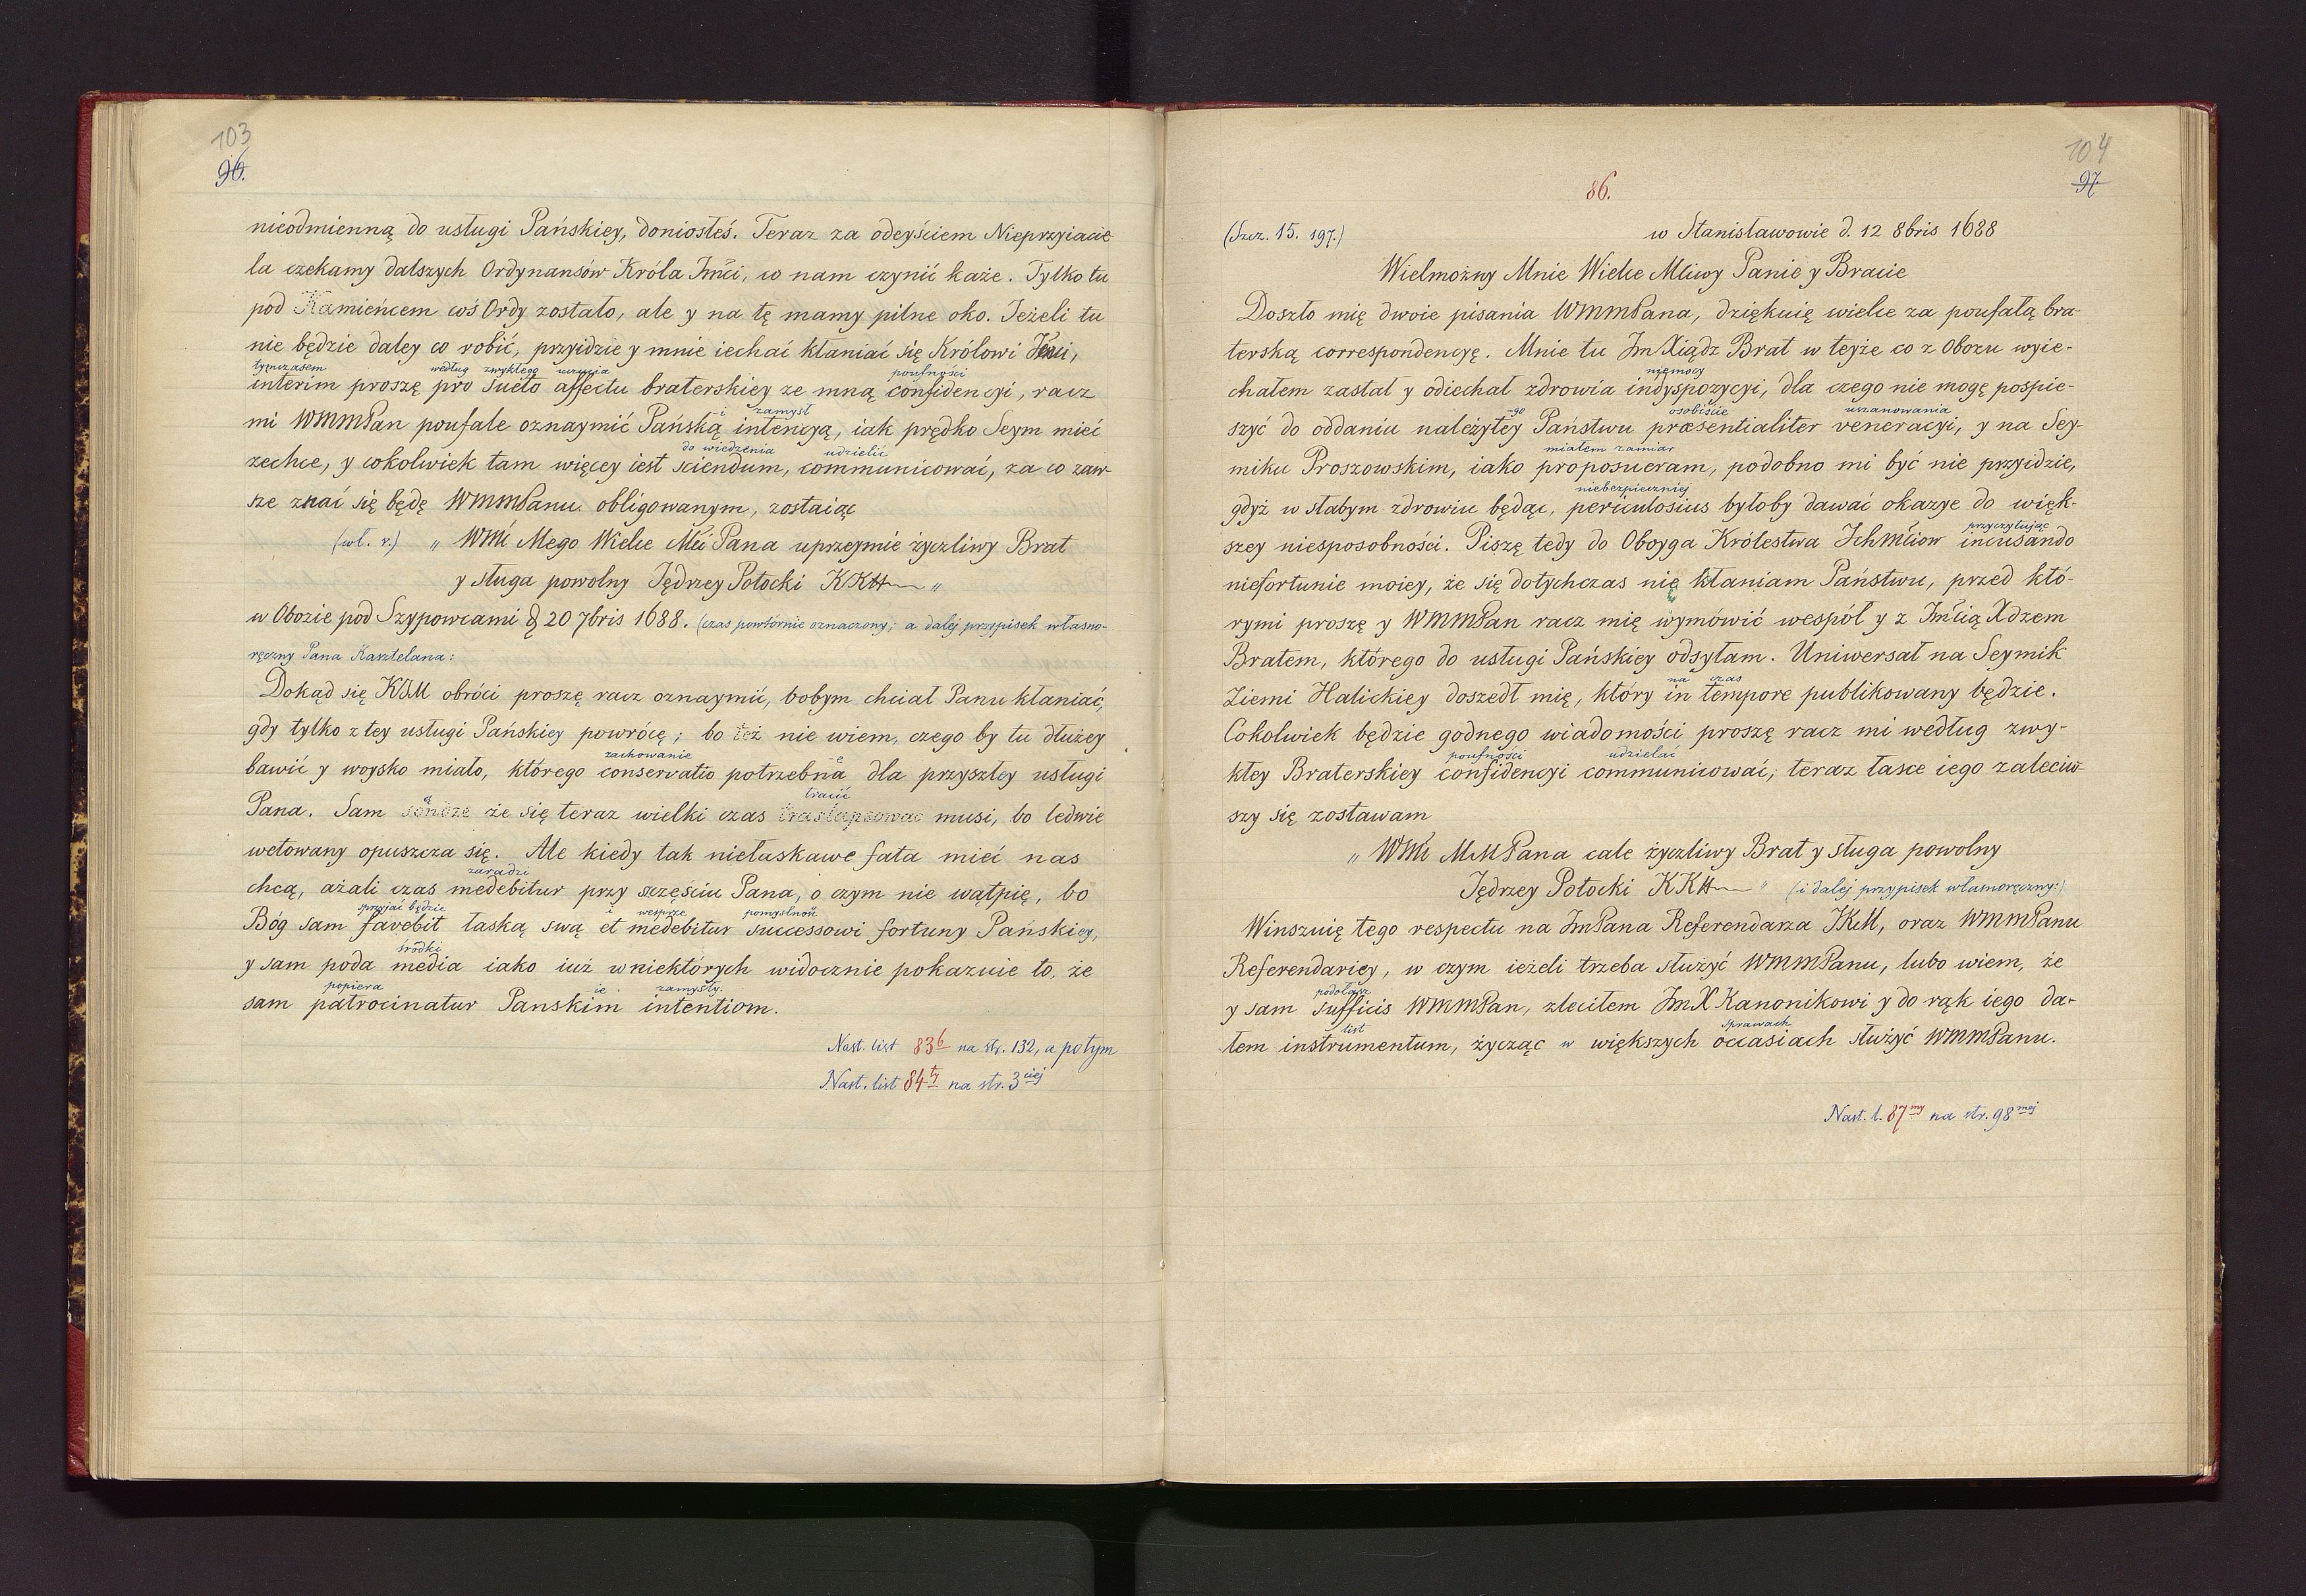 103
96.
nieodmienną do usługi Pańskiey, doniosłeś. Teraz za odeyściem Nieprzyiacie-
la czekamy dalszych Ordynansów Króla Jmći, co nam czynić każe. Tylko tu
pod Kamieńcem coś Ordy zostało, ale y na tę mamy pilne oko. Jeżeli tu
nie będzie daley co robić, przyidzie y mnie iechać kłaniać się Królowi
tymczasem według zwykłego uczucia poufności
interim proszę pro sueto affectu braterskiey ze mną confidencyi, racz
i zamysł
mi WMMPan poufale oznaymić Pańską intencyą, iak prędko Seym mieć
do wiedzenia udzielić
zechce, y cokolwiek tam więcey iest sciendum, communicować, za co zaw-
sze znać się będę WMMPanu obligowanym, zostaiąc
(wł. r.) „ WMć Mego Wielce Mći Pana uprzeymie życzliwy Brat
y sługa powolny Jędrzey Potocki KKH „
w Obozie pod Szypowcami d 20 7bris 1688. (czas powtórnie oznaczony; a dalej przypisek własno-
ręczny Pana Kasztelana:
Dokąd się KJM obróci proszę racz oznaymić, bobym chciał Panu kłaniać,
gdy tylko z tey usługi Pańskiey powrócę; bo też nie wiem, czego by tu dłużey
zachowanie e
bawić y woysko miało, którego conservatio potrzebna dla przyszłey usługi
tracić
Pana. Sam że się teraz wielki czas musi, bo ledwie
wetowany opuszcza się. Ale kiedy tak niełaskawe fata mieć nas
zaradzi
chcą, ażali czas medebitur przy szczęściu Pana, o czym nie wątpię, bo
sprzyjać będzie i wesprze pomyślność
Bóg sam favebit łaską swą et medebitur successowi fortuny Pańskiey,
środki
y sam poda media iako iuż w niektórych widocznie pokazuie to, że
popiera ie zamysły.
sam patrocinatur Panskim intentiom.
Nast. list 83b na str. 132, a potym
Nast. list 84ty na str. 3ciej
104
97
86.
(Szcz. 15. 197.)
w Stanisławowie d. 12 8bris 1688
Wielmożny Mnie Wielce Mliwy Panie y Bracie
Doszło mię dwoie pisania WMMPana, dziękuię wielce za poufałą bra-
terską correspondencyę. Mnie tu Jm Xiądz Brat w teyże co z Obozu wyie-
niemocy
chałem zastał y odiechał zdrowia indyspozycyi, dla czego nie mogę pospie-
go osobiście uszanowania
szyć do oddaniu należytey Państwu præsentialiter veneracyi, y na Sey-
miałem zamiar
miku Proszowskim, iako proposueram, podobno mi być nie przyidzie,
niebezpieczniej
gdyż w słabym zdrowiu będąc, periculosius byłoby dawać okazye do więk-
przyczytując
szey niesposobności. Piszę tedy do Oboyga Królestwa IchMćiow incusando
niefortunie moiey, że się dotychczas nie kłaniam Państwu, przed któ-
rymi proszę y WMMPan racz mię wymówić wespół y z Jmćią Xdzem
Bratem, którego do usługi Pańskiey odsyłam. Uniwersał na Seymik
na czas
Ziemi Halickiey doszedł mię, który in tempore publikowany będzie.
Cokolwiek będzie godnego wiadomości proszę racz mi według zwy-
poufności udzielać
kłey Braterskiey confidencyi communicować, teraz łasce iego zaleciw-
szy się zostawam
„ WMć MMPana cale życzliwy Brat y sługa powolny
Jędrzey Potocki KKH „ (i dalej przypisek własnoręczny:)
Winszuię tego respectu na JmPana Referendarza JKM, oraz WMMPanu
Referendariey, w czym ieżeli trzeba służyć WMMPanu, lubo wiem, że
podołasz
y sam sufficis WMMPan, zleciłem Jm X Kanonikowi y do rąk iego da-
list sprawach
łem instrumentum, życząc w większych occasiach służyć WMMPanu.
Nast. l. 87my na str. 98mej